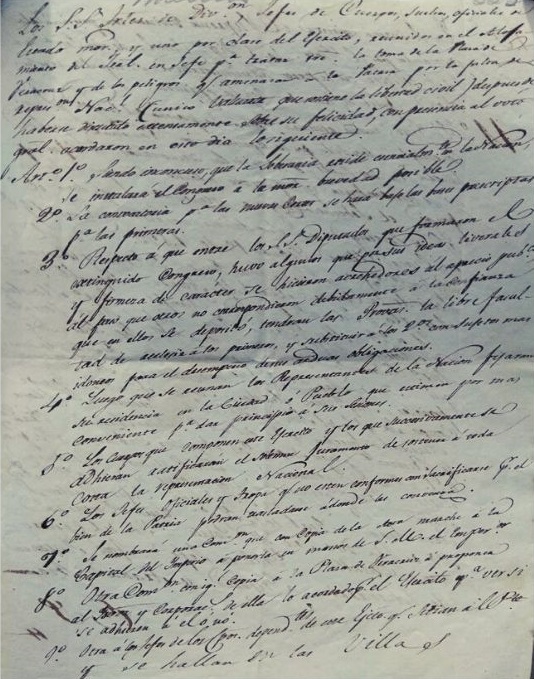 Los S.S. Jefes de Div.on, Jefes de Cuerpos, sueltos, oficiales de
mayor y uno por clase del Ejército, reunidos en el Aloja
miento del Gral. en Jefe p.a tratar sobre la toma de la Plaza de
y de los peligros q. amenazan a la Patria por la falta de
represent.on Nac.l unico que sostiene la libertad civil, despues de
haberse discutido atentamente sobre su felicidad, con presencia al voto
gral. acordaron en este dia lo siguiente
Art.o 1.o Siendo inconcuso, que la Soberania reside esencialm.te en la Nacion,
se instalara el Congreso à la mor. brevedad posible.
2.o La convocatoria p.a las nuevas Cortes se hará bajo las bases prescriptas
p.a las primeras.
3.o Respecto à que entre los S.S. Diputados que formaron el
extinguido Congreso, hubo algunos que por sus ideas liberales
y firmeza de carácter se hicieron acreedores al aprecio pub.co
al paso que otros no correspondieron debidamente à la confianza
que en ellos se depositó, tendran las Provas. la libre facul
tad de reelegir à los primeros, y substituir à los 2.os con sugetos mas
idoneos para el desempeño de sus arduas obligaciones.
4.o Luego que se reunan los Representantes de la Nacion fijaran
su residencia en la Ciudad ó Pueblo que estimen por mas
conveniente p.a dar principio à sus sesiones.
5.o Los Cuerpos que componen este Ejército y los que sucesivamente se
adhieran ratificarán el solemne juramento de sostener à toda
costa la representacion Nacional.
6.o Los Jefes, Oficiales y Tropa q. no esten conformes con sacrificarse p.r el
bien de la Patria podran trasladarse adonde les convenga.
7.o Se nombrara una Com.on que con Copia de la Acta marche à la
Capital del Imperio à ponerla en manos de S. M. el Emper.or
8.o Otra Com.on con ig.l Copia à la Plaza de Veracruz à proponer
al Gob.or y Corporac.s de ella lo acordado p.r el Ejército p.a ver si
se adhieren à el o no.
9.o Otra a los Jefes de los Cpos. depend.tes de este Ejto. q. sitian àl Pte.
y se hallan en las Villas